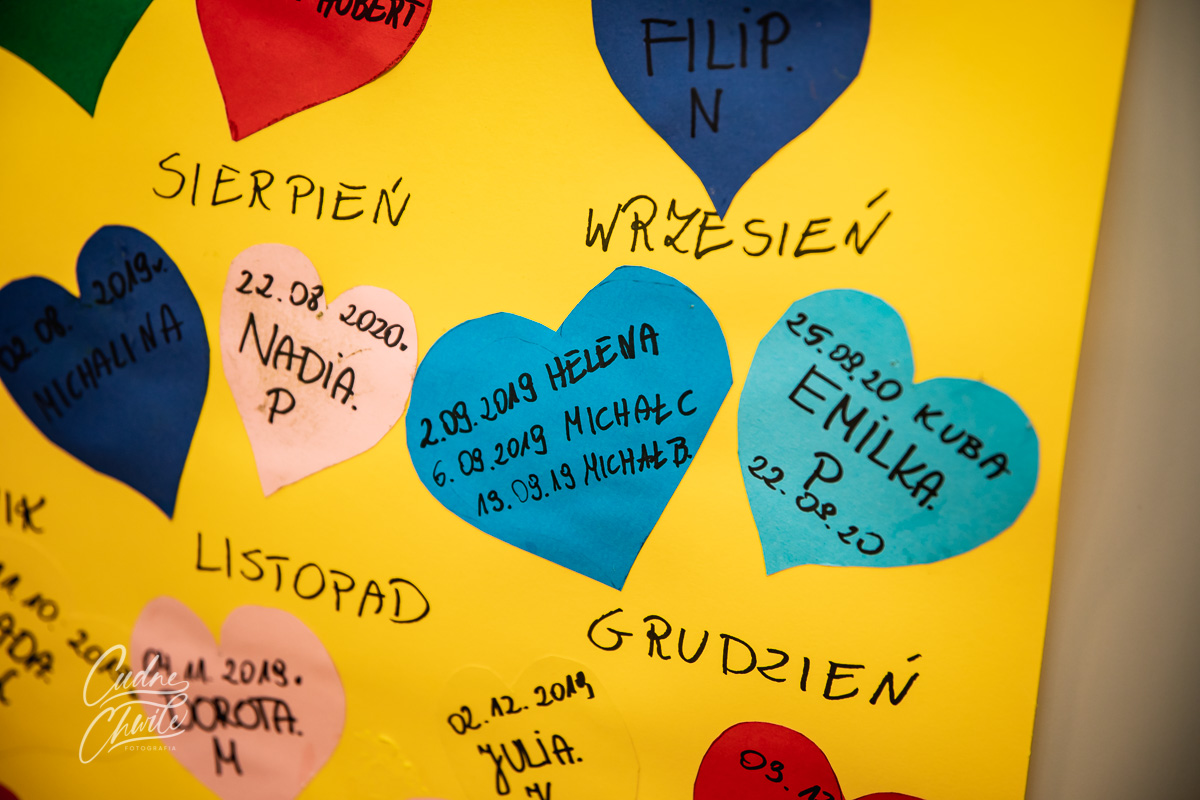 HUBERT
FILIP.
N
SIERPIEŃ
WRZESIEŃ
02.08. 2019r.
MICHALINA
22.08. 2020.
NADIA.
P
2.09.2019 HELENA
6.09.2019 MICHAŁ C
19.09.19 MICHAŁ B.
25.09.20 KUBA
EMILKA.
P
22.09.20
IK
LISTOPAD
GRUDZIEŃ
11.10.
04.11.2019.
DOROTA.
M
02.12.2019,
JULIA.
09.12
Cudne
Chwile
FOTOGRAFIA